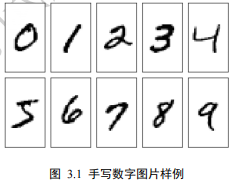 0 1 2 3 4
5 6 7 8 9
图 3.1 手写数字图片样例